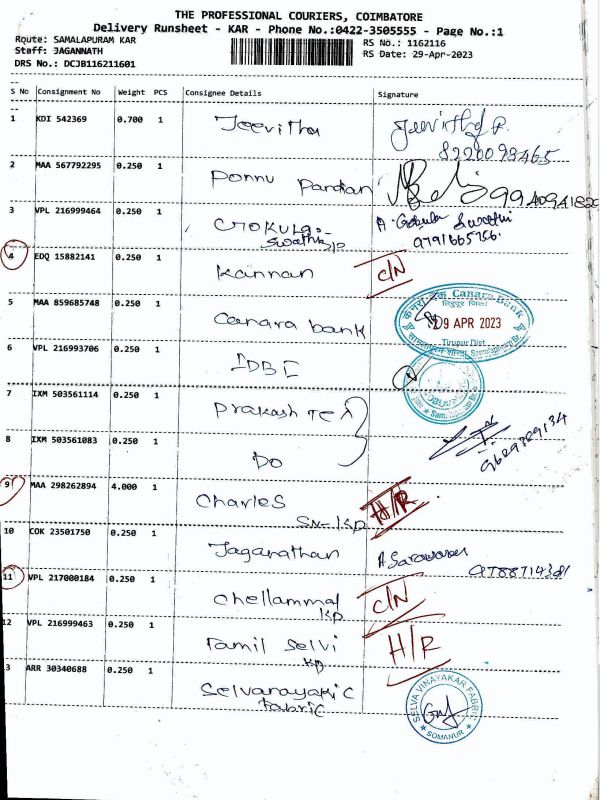 THE PROFESSIONAL COURIERS, COIMBATORE
Delivery Runsheet - KAR - Phone No.:0422-3505555 - Page No.:1
Route: SAMALAPURAM KAR
Staff: JAGANNATH
DRS No.: DCJB116211601
RS No.: 1162116
RS Date: 29-Apr-2023
S No Consignment No Weight PCS Consignee Details Signature
1 KDI 542369 0.700 1 Jeevitha
8220093465
2 MAA 567792295 0.250 1 Ponnu Pandian
3 VPL 216999464 0.250 1 Gokula Swathi A. Gokula Swathi
9791665756.
4 EDQ 15882141 0.250 1 Kannan C/N
5 MAA 859685748 0.250 1 Canara bank
केनरा बैंक Canara Bank
29 APR 2023
Tirupur Dist.
6 VPL 216993706 0.250 1 IDBI
7 IXM 503561114 0.250 1 Prakash Tex
8 IXM 503561083 0.250 1 DO
9629829134
9 MAA 298262894 4.000 1 Charles H/R
10 COK 23501750 0.250 1 Jaganathan A Saravanan
11 VPL 217000184 0.250 1 Chellammal KP C/N
12 VPL 216999463 0.250 1 Tamil Selvi KP H/R
3 ARR 30340688 0.250 1 Selvanayaki C
Fabric
SELVA VINAYAKAR FABRIC
SOMANUR